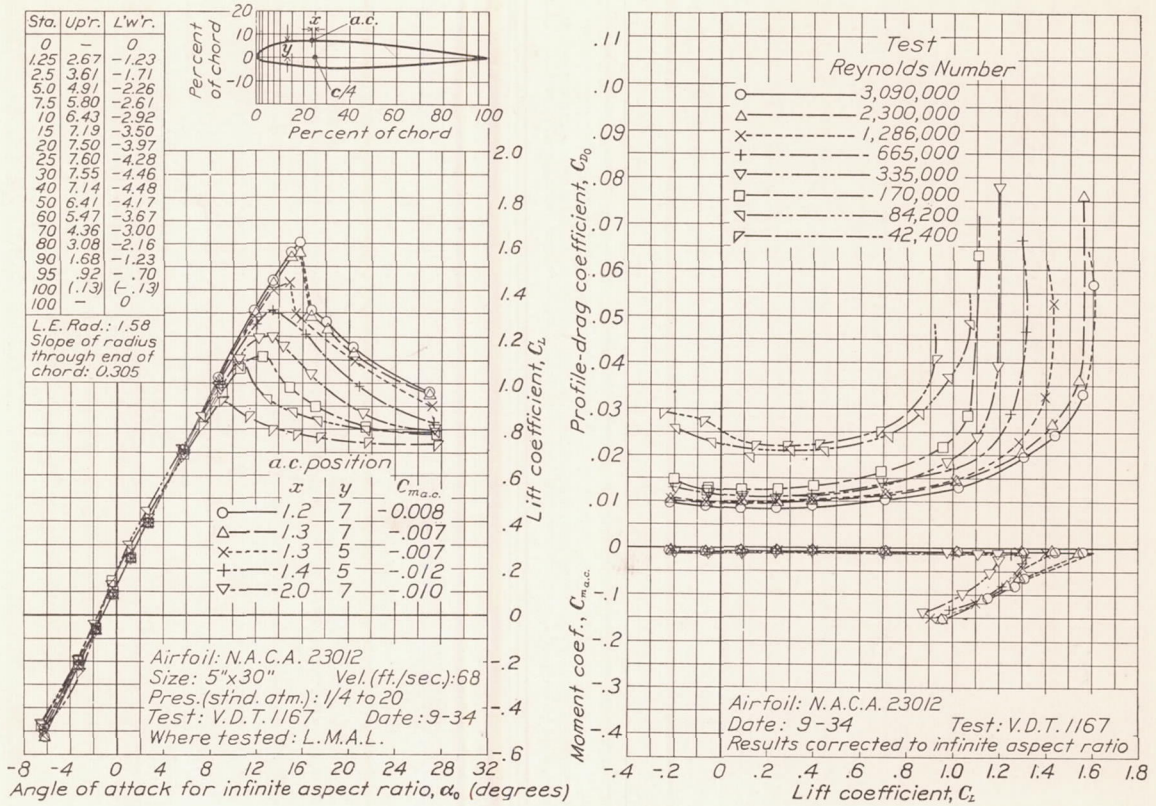 Sta. Up'r. L'w'r.
0 – 0
1.25 2.67 –1.23
2.5 3.61 –1.71
5.0 4.91 –2.26
7.5 5.80 –2.61
10 6.43 –2.92
15 7.19 –3.50
20 7.50 –3.97
25 7.60 –4.28
30 7.55 –4.46
40 7.14 –4.48
50 6.41 –4.17
60 5.47 –3.67
70 4.36 –3.00
80 3.08 –2.16
90 1.68 –1.23
95 .92 – .70
100 (.13) (– .13)
100 – 0
L.E. Rad.: 1.58
Slope of radius
through end of
chord: 0.305
Percent
of chord
20
10
0
-10
x
a.c.
y
c/4
0 20 40 60 80 100
Percent of chord
2.0
1.8
1.6
1.4
1.2
1.0
.8
.6
.4
.2
0
-.2
-.4
-.6
Lift coefficient, CL
a.c. position
x y Cm a.c.
1.2 7 -0.008
1.3 7 -.007
1.3 5 -.007
1.4 5 -.012
2.0 7 -.010
Airfoil: N.A.C.A. 23012
Size: 5"x30" Vel.(ft./sec.):68
Pres.(st'nd. atm.): 1/4 to 20
Test: V.D.T. 1167 Date: 9-34
Where tested: L.M.A.L.
-8 -4 0 4 8 12 16 20 24 28 32
Angle of attack for infinite aspect ratio, α0 (degrees)
.11
.10
.09
.08
.07
.06
.05
.04
.03
.02
.01
0
-.1
-.2
-.3
-.4
Profile-drag coefficient, CD0
Moment coef., Cm a.c.
Test
Reynolds Number
3,090,000
2,300,000
1,286,000
665,000
335,000
170,000
84,200
42,400
Airfoil: N.A.C.A. 23012
Date: 9-34 Test: V.D.T. 1167
Results corrected to infinite aspect ratio
-.4 -.2 0 .2 .4 .6 .8 1.0 1.2 1.4 1.6 1.8
Lift coefficient, CL